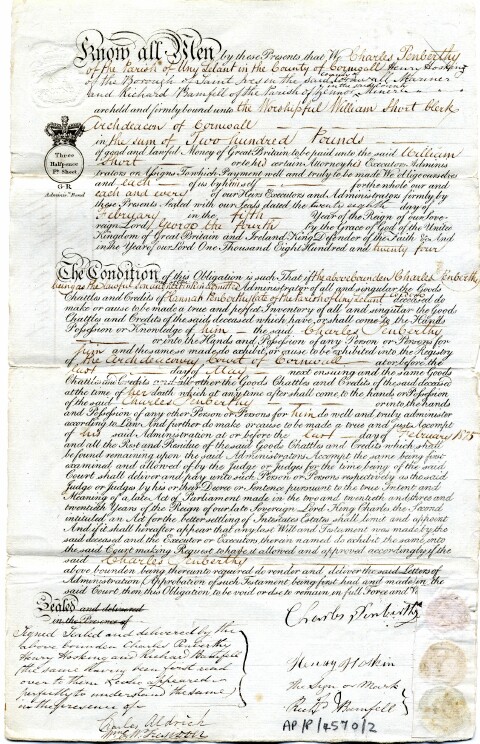 Know all Men by these Presents that We Charles Penberthy
of the Parish of Uny Lelant in the County of Cornwall Henry Hosking
of the Borough of Saint Ives in the said County of Cornwall
and Richard Bamfell of the Parish of
are held and firmly bound unto the Worshipful William Short Clerk
Archdeacon of Cornwall
in the sum of Two hundred Pounds
of good and lawful Money of Great Britain to be paid unto the said William
Short or to his certain Attorney his Executors Adminis
trators or Assigns For which Payment well and truly to be made We oblige ourselves
and each of us by himself for the whole our and
each and every of our Heirs Executors and Administrators firmly by
these Presents Sealed with our Seals dated the twenty eighth day of
February in the fifth Year of the Reign of our Sove
reign Lord George the fourth by the Grace of God of the United
Kingdom of Great Britain and Ireland King Defender of the Faith &c And
in the Year of our Lord One Thousand Eight Hundred and twenty four
Three
Half-pence
Pr. Sheet
G R
Administ. Bond
The Condition of this Obligation is such That if the above bounden Charles Penberthy
being the lawful Administrator of all and singular the Goods
Chattls and Credits of Hannah Penberthy late of the Parish of Uny Lelant deceased do
make or cause to be made a true and perfect Inventory of all and singular the Goods
Chattls and Credits of the said deceased which have or shall come to the Hands
Possession or Knowledge of him the said Charles Penberthy
or into the Hands and Possession of any Person or Persons for
him and the same so made do exhibit, or cause to be exhibited into the Registry
of the Archdeaconry Court of Cornwall at or before the
last day of May next ensuing and the same Goods
Chattls and Credits and all other the Goods Chattls and Credits of the said deceased
at the time of her death which at any time after shall come to the hands or Possession
of the said Charles Penberthy or into the hands
and Possession of any other Person or Persons for him do well and truly administer
according to Law And further do make or cause to be made a true and just Accompt
of his said Administration at or before the last day of February 1825
and all the Rest and Residue of the said Goods Chattls and Credits which shall
be found remaining upon the said Administrators Accompt the same being first
examined and allowed of by the Judge or Judges for the time being of the said
Court shall deliver and pay unto such Person or Persons respectively as the said
Judge or Judges by his or their Decree or Sentence pursuant to the true Intent and
Meaning of a late Act of Parliament made in the two and twentieth and three and
twentieth Years of the Reign of our late Sovereign Lord King Charles the Second
intituled an Act for the better settling of Intestates Estates shall limit and appoint
And if it shall hereafter appear that any last Will and Testament was made by the
said deceased and the Executor or Executors therein named do exhibit the same into
the said Court making Request to have it allowed and approved accordingly if the
said Charles Penberthy
above bounden being thereunto required do render and deliver the said Letters of
Administration (Approbation of such Testament being first had and made) in the
said Court, then this Obligation to be void or else to remain in full Force and
Sealed and delivered
in the Presence of
Signed Sealed and delivered by the
above bounden Charles Penberthy
Henry Hosking and Richard Bamfell
(the same having been first read
over to them & who appeared
perfectly to understand the same)
in the presence of
Charles Aldrich
Charles Penberthy
Henry Hoskin
The Sign or Mark
Richd Bamfell
AP/P/4570/2